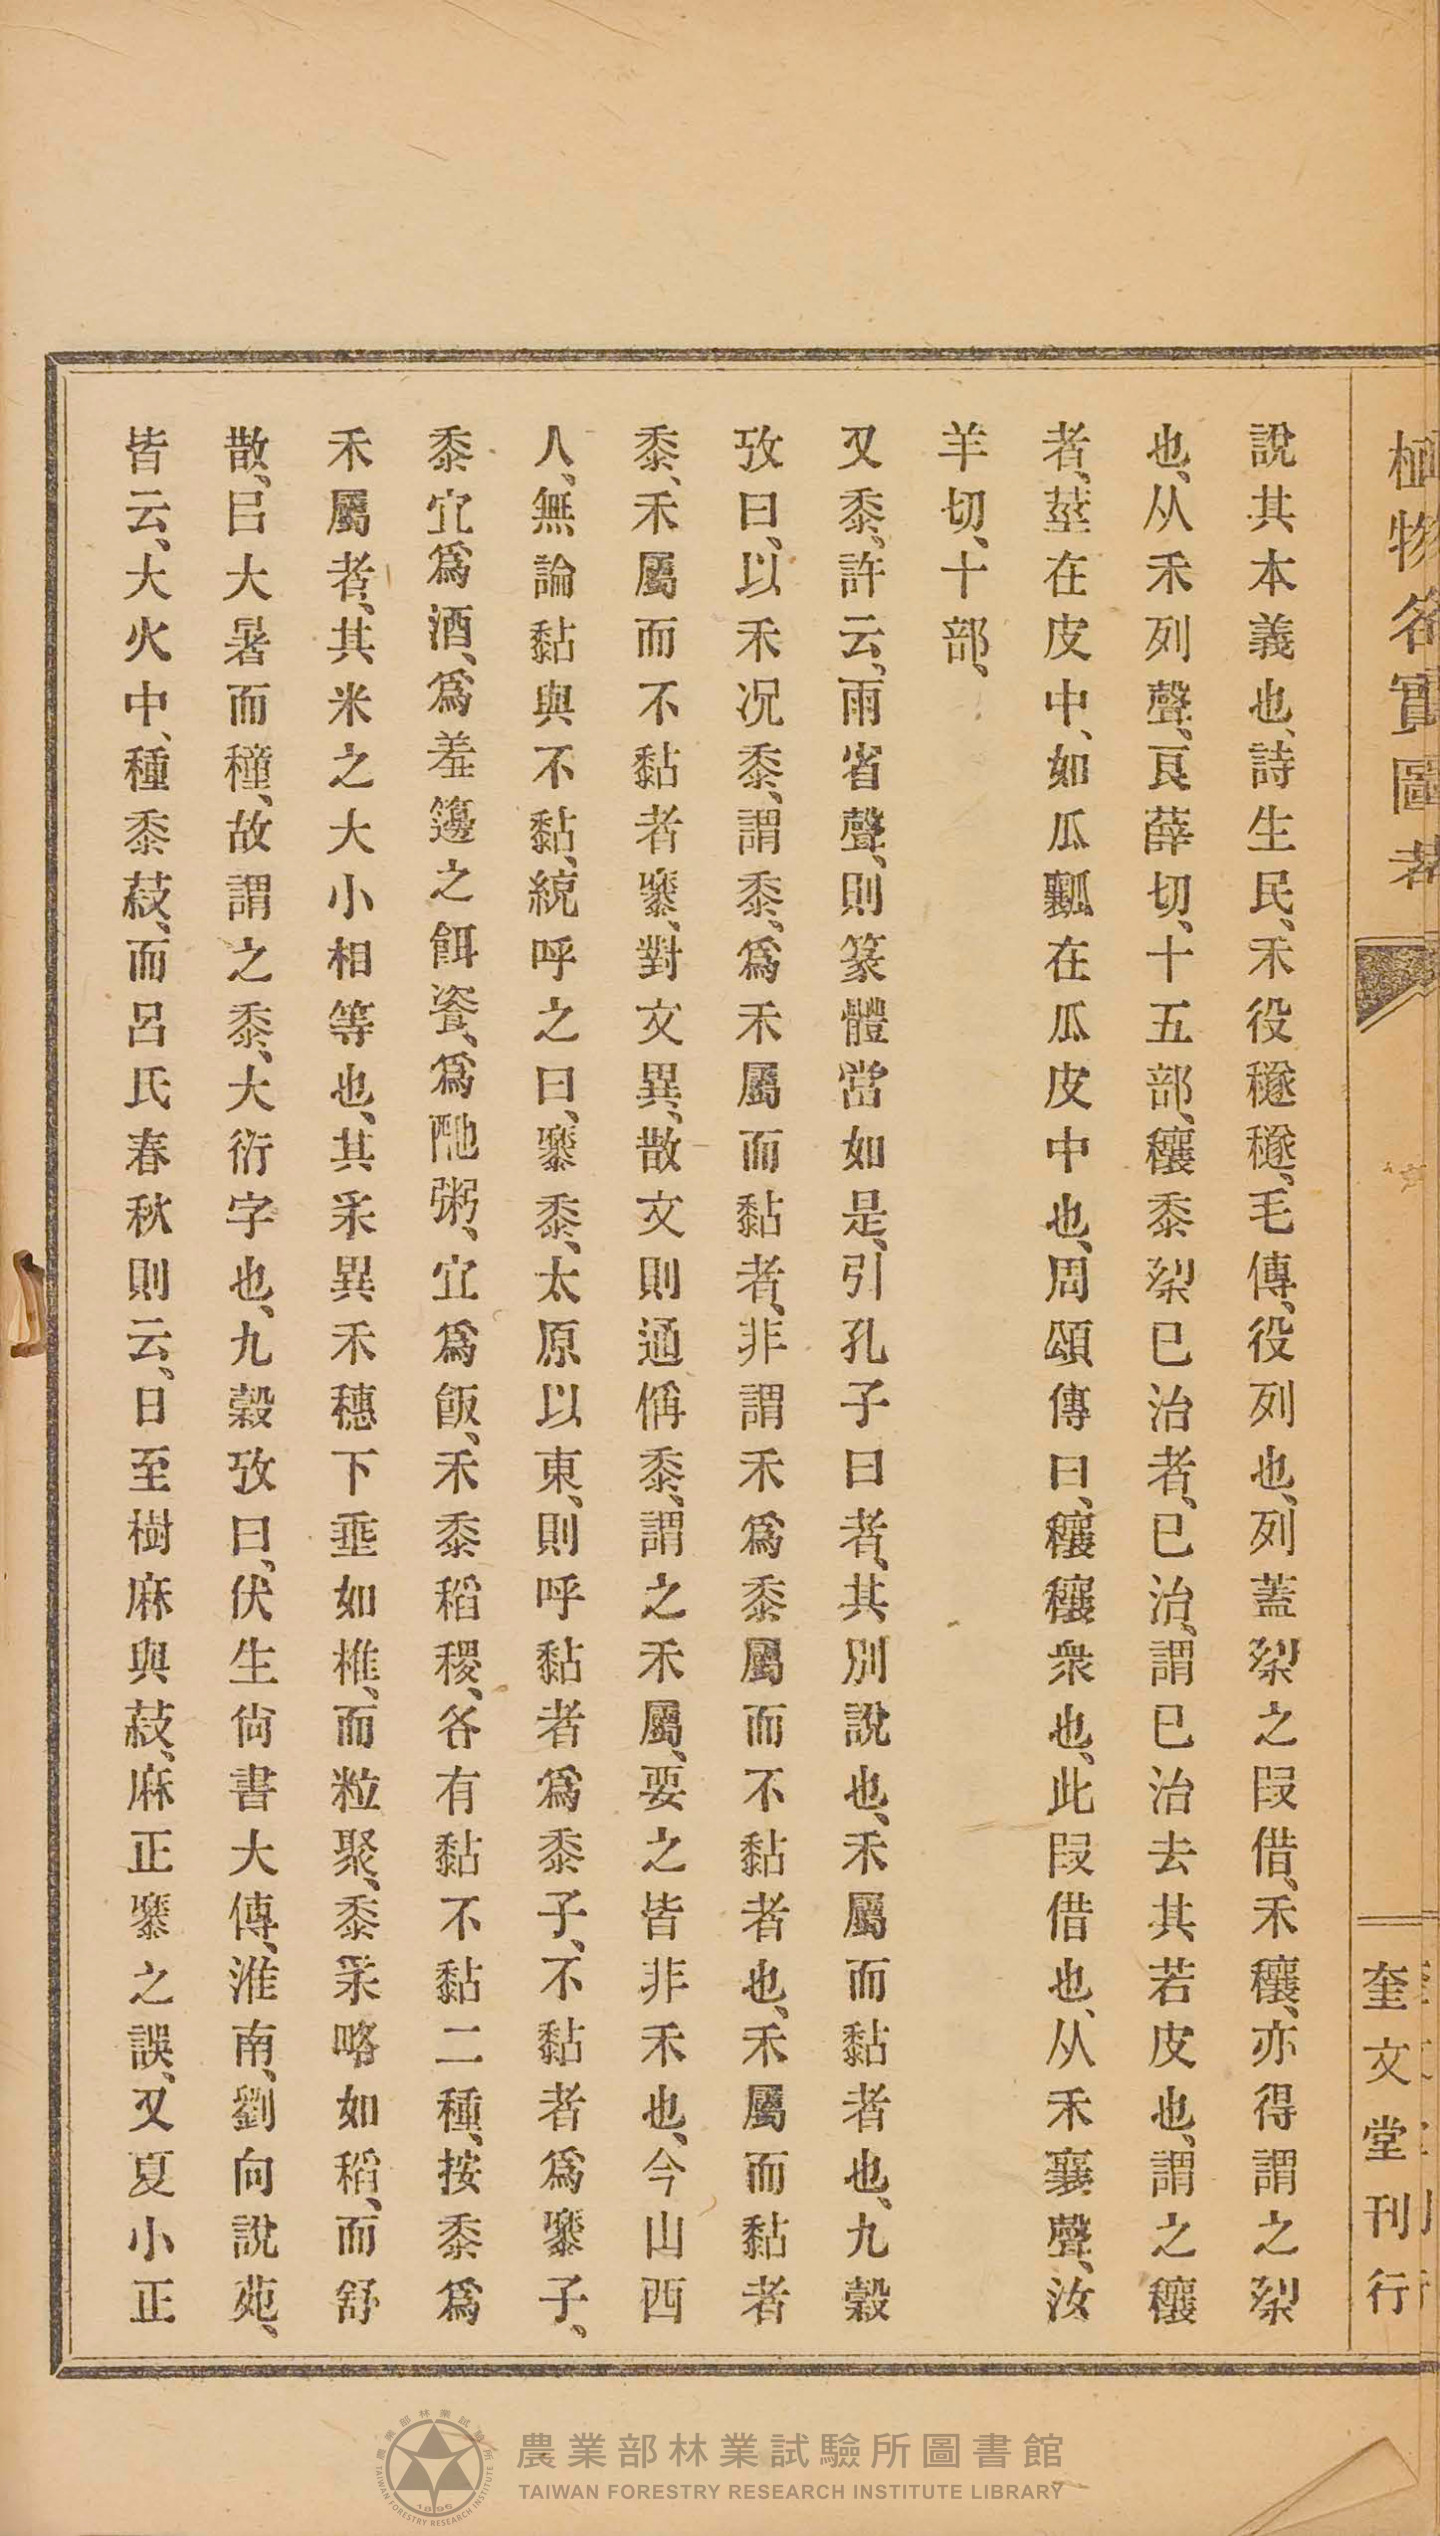 植物名實圖考
奎文堂刊行
說其本義也、詩生民、禾役穟穟、毛傳、役列也、列蓋𥞥之叚借、禾穰、亦得謂之𥞥
也、从禾列聲、良薛切、十五部、穰黍𥞥已治者、已治、謂已治去其若皮也、謂之穰
者、莖在皮中、如瓜瓤在瓜皮中也、周頌傳曰、穰穰衆也、此叚借也、从禾襄聲、汝
羊切、十部、
又黍、許云、雨省聲、則篆體當如是、引孔子曰者、其別說也、禾屬而黏者也、九穀
攷曰、以禾况黍、謂黍、爲禾屬而黏者、非謂禾爲黍屬而不黏者也、禾屬而黏者
黍、禾屬而不黏者穈、對文異、散文則通偁黍、謂之禾屬、要之皆非禾也、今山西
人、無論黏與不黏、統呼之曰、穈黍、太原以東、則呼黏者爲黍子、不黏者爲穈子、
黍宜爲酒、爲羞籩之餌餈、爲酏粥、宜爲飯、禾黍稻稷、各有黏不黏二種、按黍爲
禾屬者、其米之大小相等也、其采異禾穗下垂如椎、而粒聚、黍采略如稻、而舒
散、㠯大暑而穜、故謂之黍、大衍字也、九穀攷曰、伏生尙書大傳、淮南、劉向說苑、
皆云、大火中、種黍菽、而呂氏春秋則云、日至樹麻與菽、麻正穈之誤、又夏小正
農業部林業試驗所圖書館
TAIWAN FORESTRY RESEARCH INSTITUTE LIBRARY